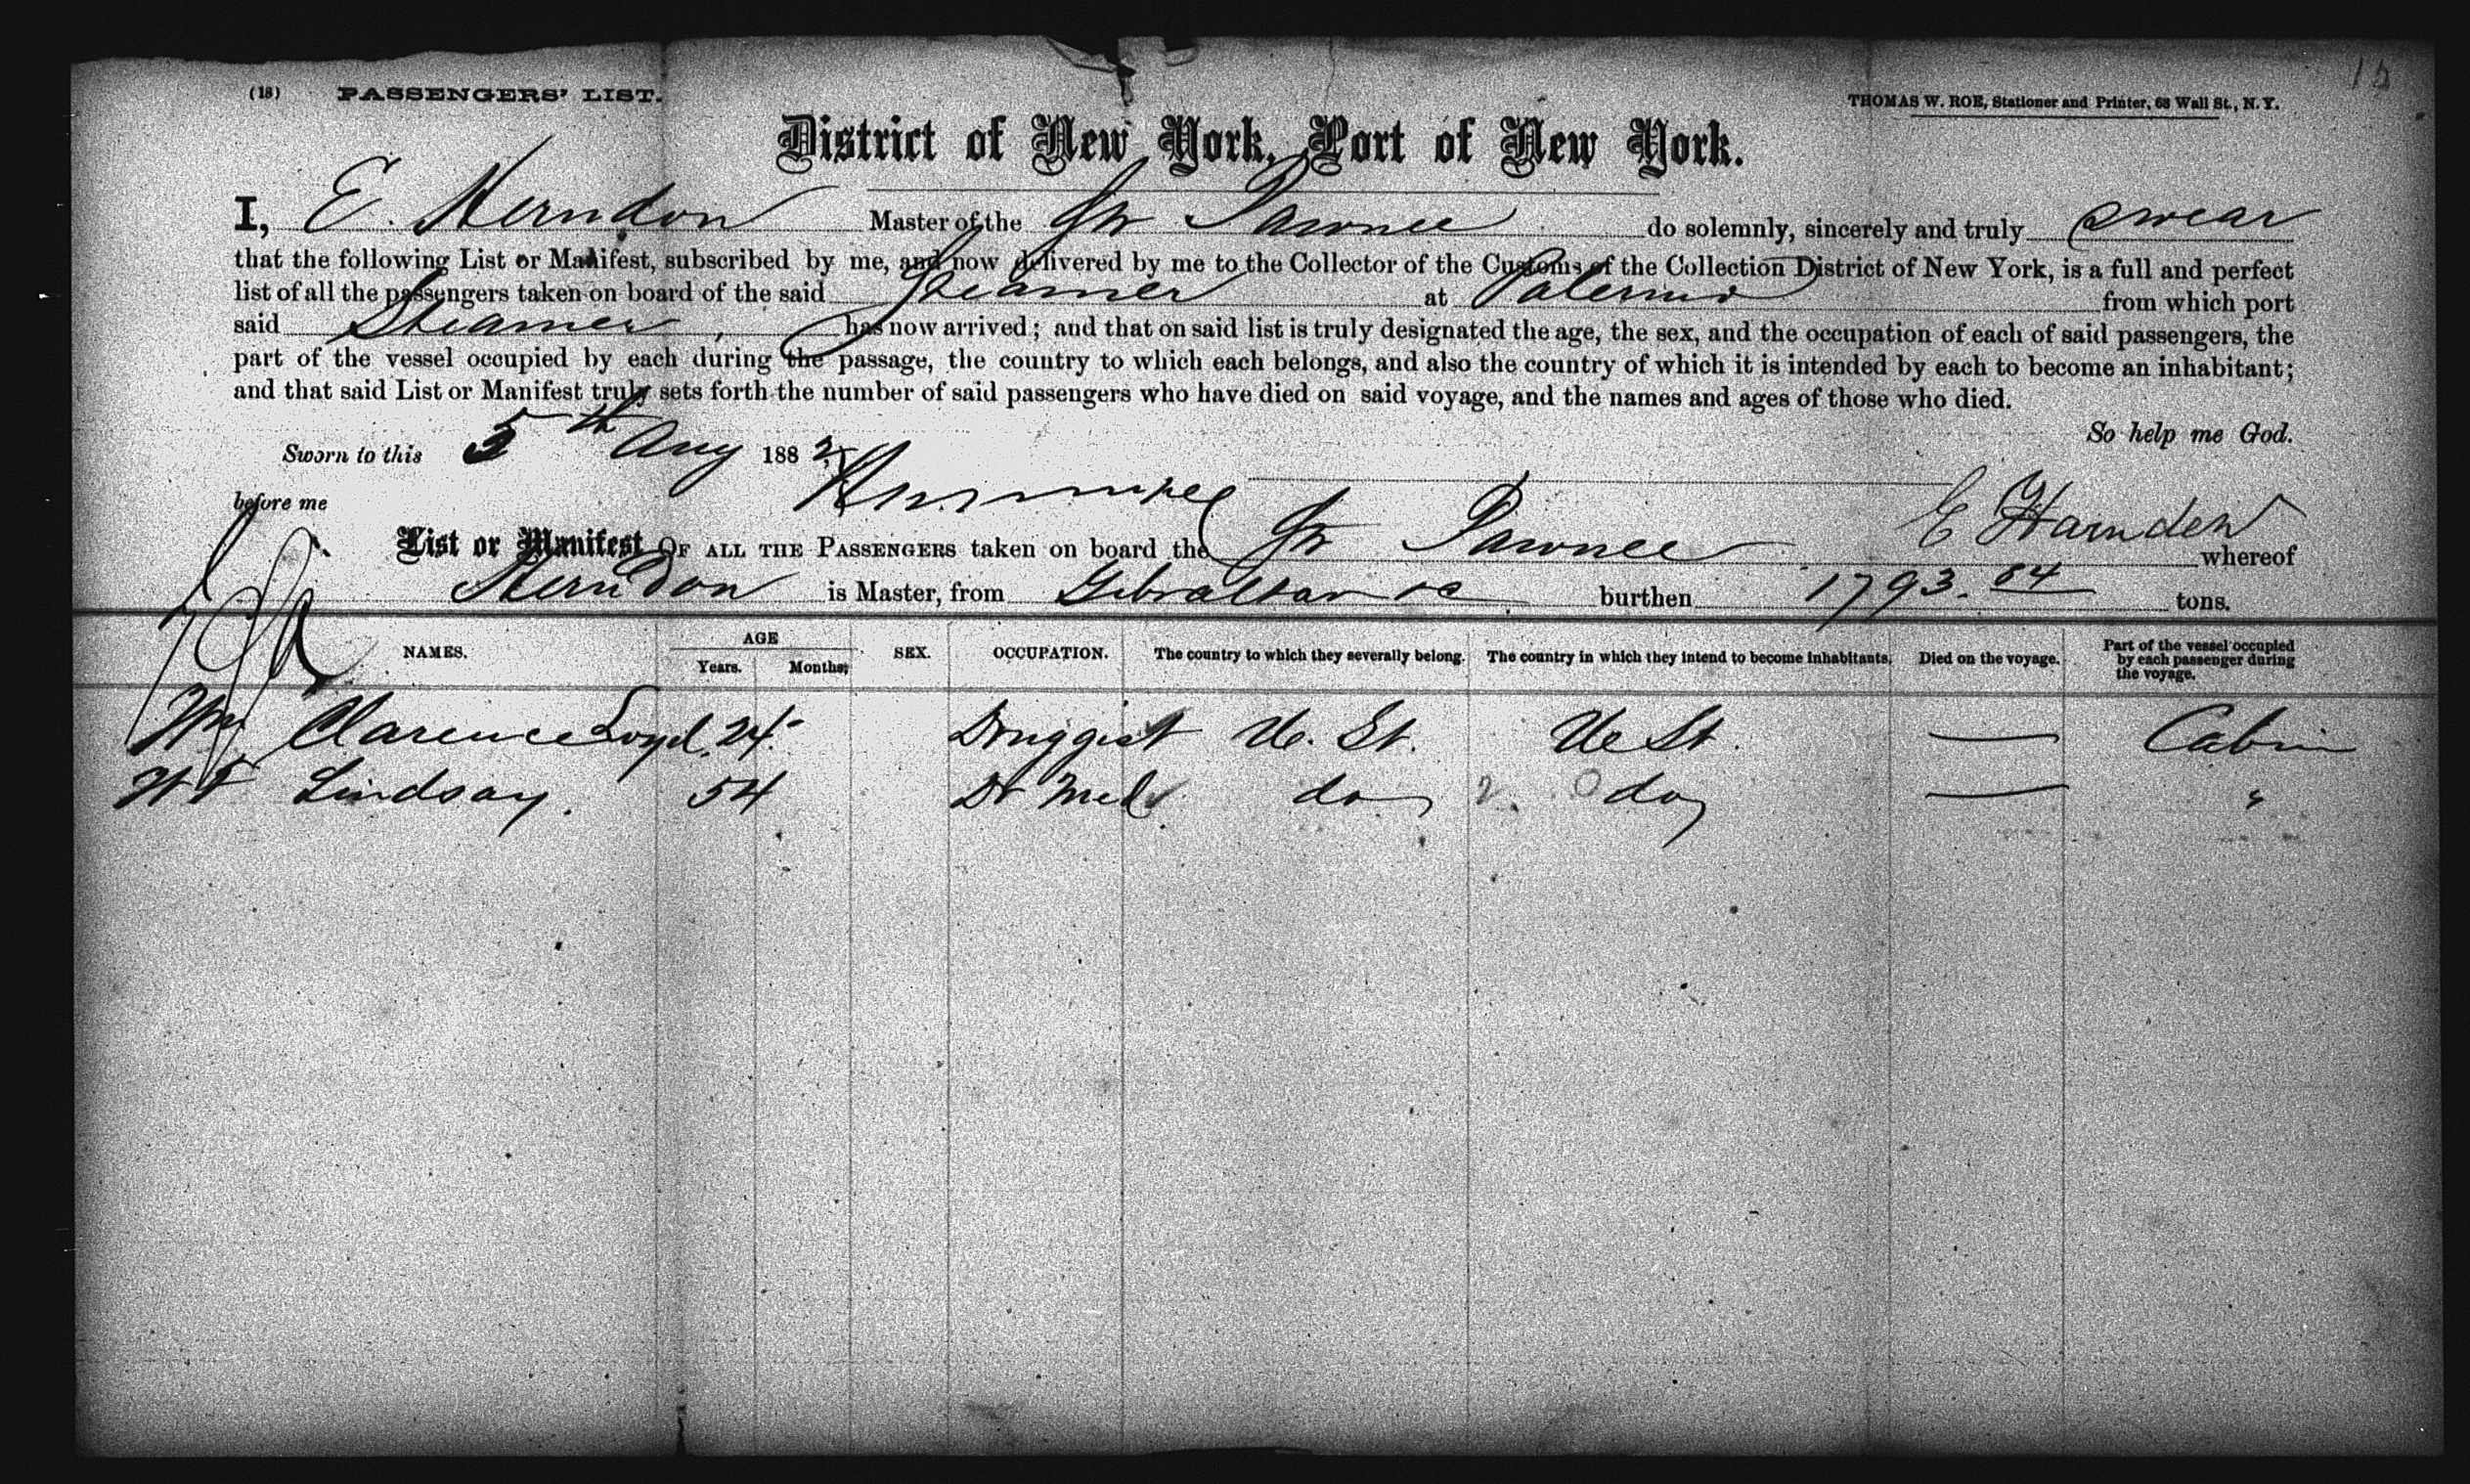 15
(18) PASSENGERS' LIST.
THOMAS W. ROE, Stationer and Printer, 63 Wall St., N.Y.
District of New York, Port of New York.
I, E. Herndon Master of the Str Pawnee do solemnly, sincerely and truly swear
that the following List or Manifest, subscribed by me, and now delivered by me to the Collector of the Customs of the Collection District of New York, is a full and perfect
list of all the passengers taken on board of the said Steamer at Palermo from which port
said Steamer, has now arrived; and that on said list is truly designated the age, the sex, and the occupation of each of said passengers, the
part of the vessel occupied by each during the passage, the country to which each belongs, and also the country of which it is intended by each to become an inhabitant;
and that said List or Manifest truly sets forth the number of said passengers who have died on said voyage, and the names and ages of those who died.
So help me God.
Sworn to this 5th Aug 1882
before me
E Harnden
List or Manifest OF ALL THE PASSENGERS taken on board the Str Pawnee whereof
Herndon is Master, from Gibraltar &c burthen 1793.84 tons.
NAMES. AGE Years. Months. SEX. OCCUPATION. The country to which they severally belong. The country in which they intend to become inhabitants. Died on the voyage. Part of the vessel occupied by each passenger during the voyage.
Clarence Loyd 24 Druggist U. St. Ue St. — Cabin
Lindsay. 54 Dr Med do 2. 0 do — "